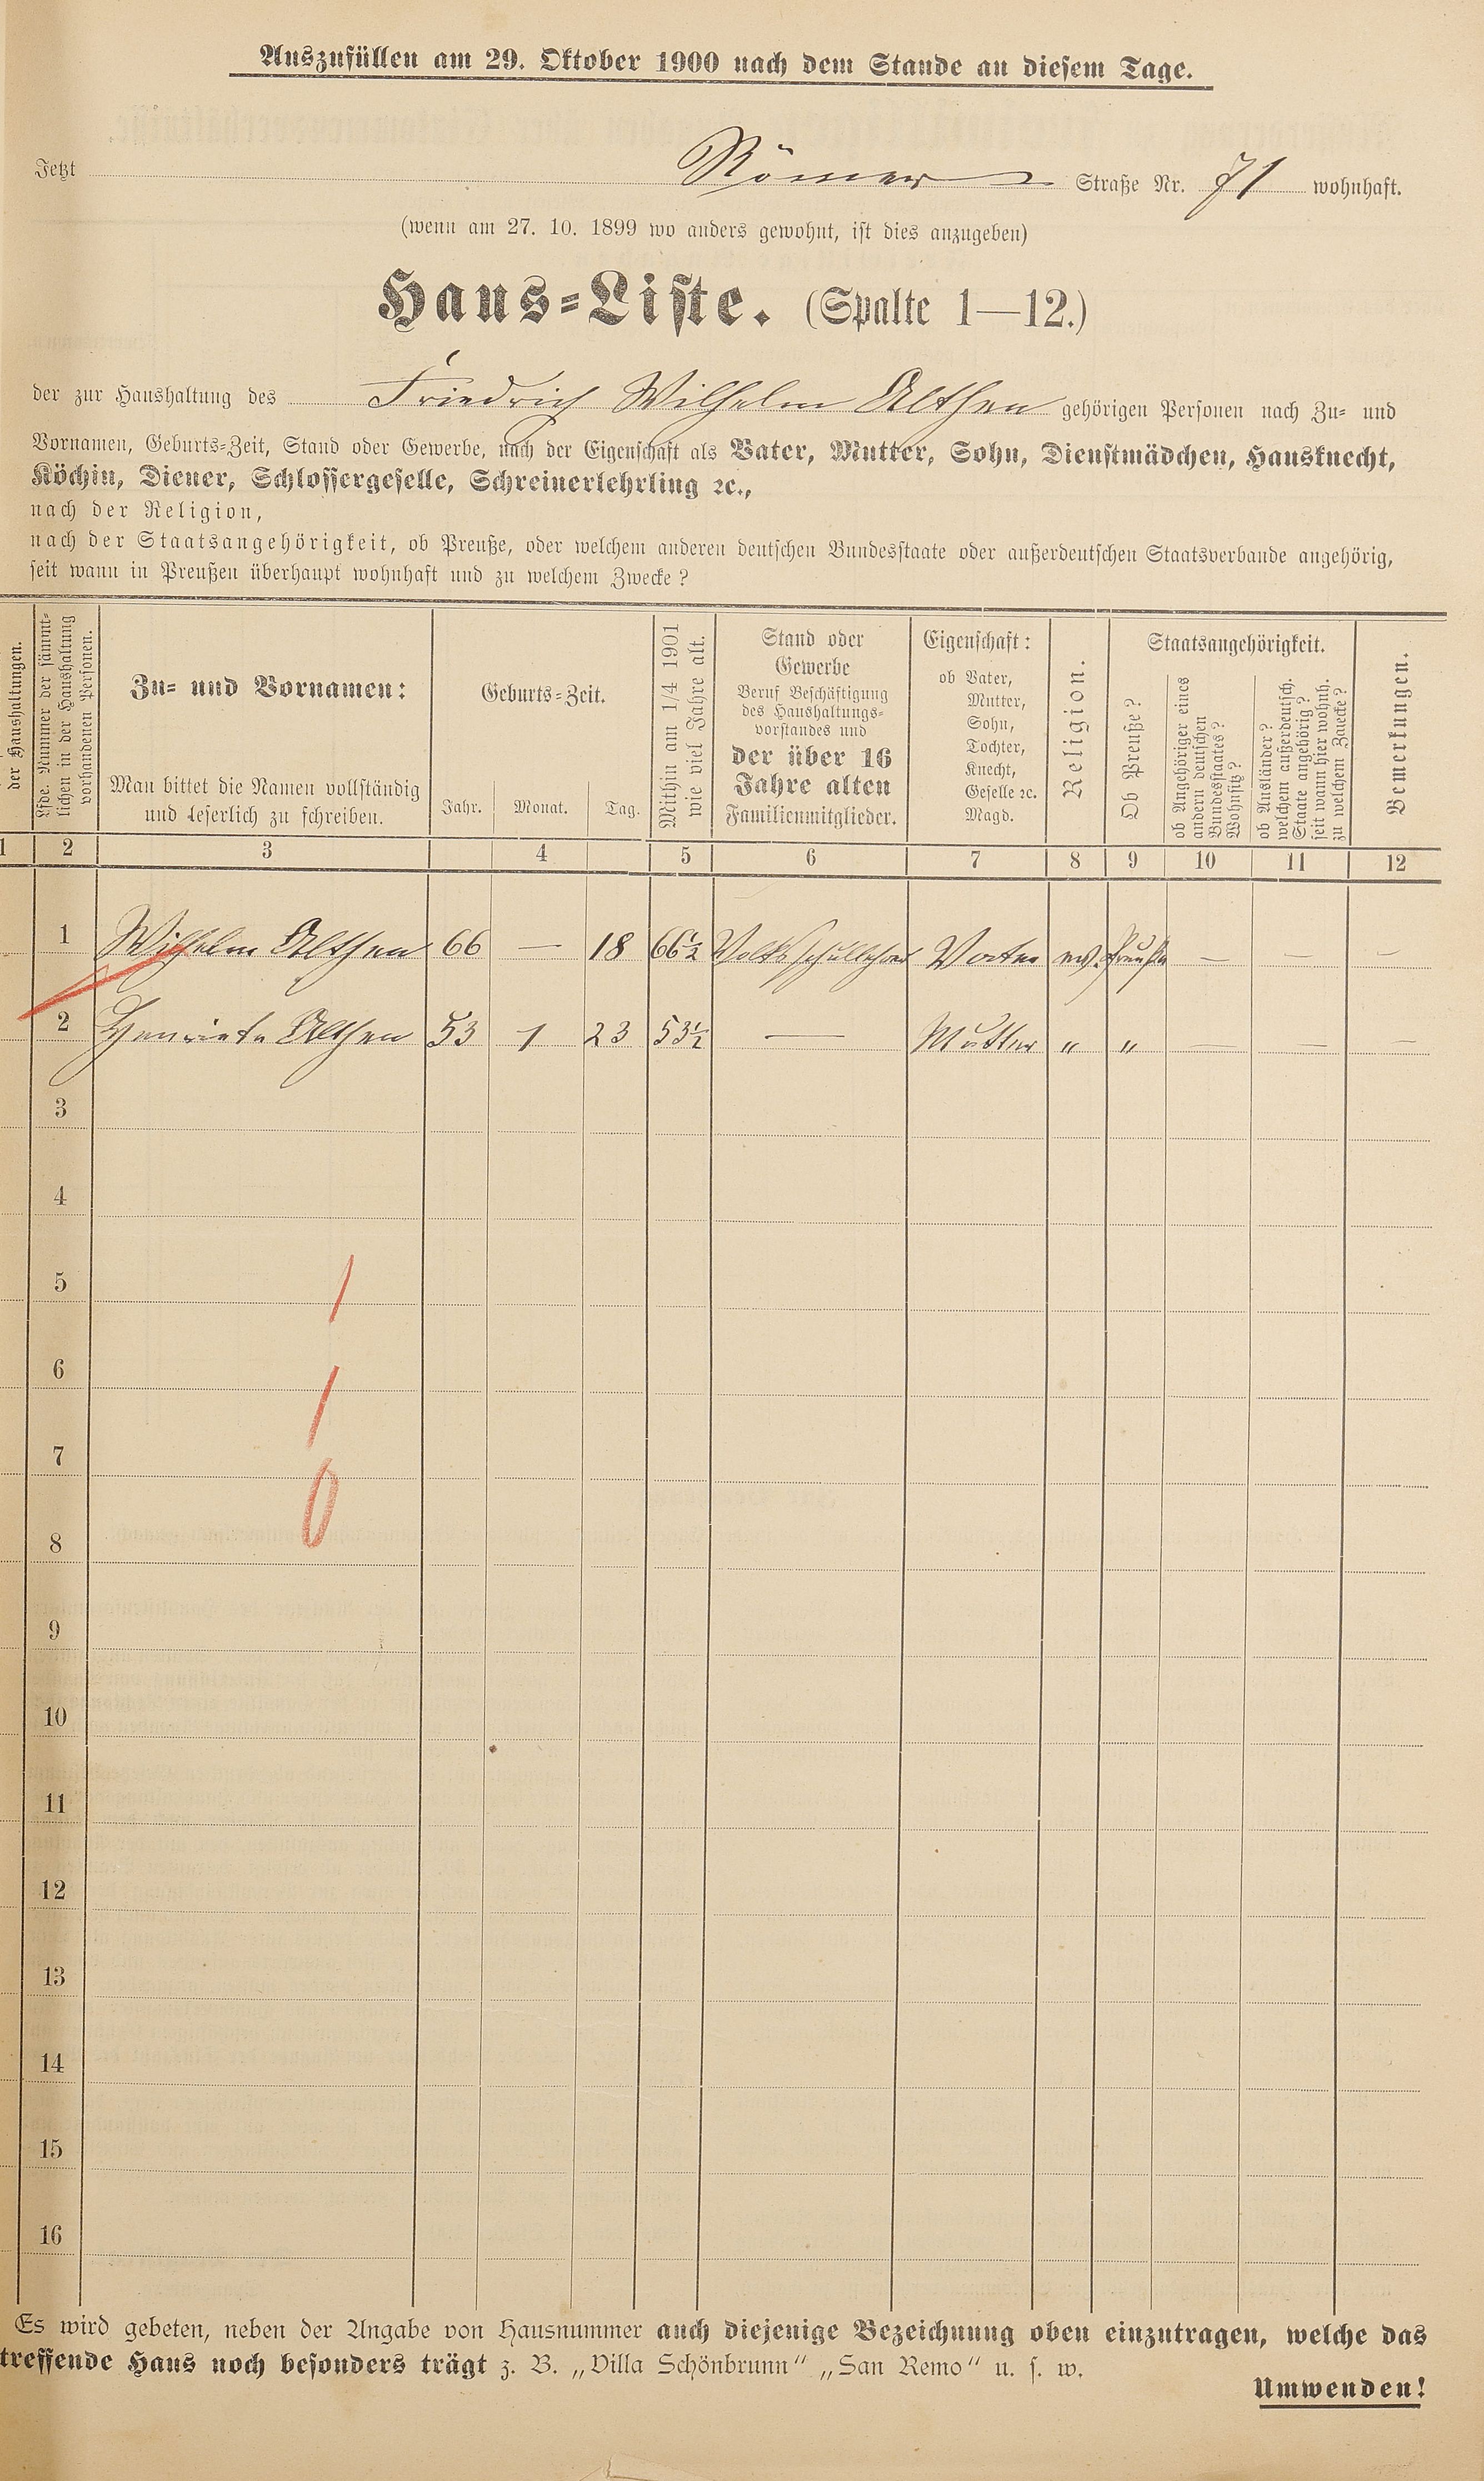 Auszufüllen am 29. Oktober 1900 nach dem Stande an diesem Tage.
Jetzt Römer Straße Nr. 71 wohnhaft.
(wenn am 27. 10. 1899 wo anders gewohnt, ist dies anzugeben)
Haus-Liste. (Spalte 1—12.)
der zur Haushaltung des Friedrich Wilhelm Althen gehörigen Personen nach Zu- und
Vornamen, Geburts-Zeit, Stand oder Gewerbe, nach der Eigenschaft als Vater, Mutter, Sohn, Dienstmädchen, Hausknecht,
Köchin, Diener, Schlossergeselle, Schreinerlehrling ꝛc.,
nach der Religion,
nach der Staatsangehörigkeit, ob Preuße, oder welchem anderen deutschen Bundesstaate oder außerdeutschen Staatsverbande angehörig,
seit wann in Preußen überhaupt wohnhaft und zu welchem Zwecke?
der Haushaltungen.
Lfde. Nummer der sämmt-
lichen in der Haushaltung
vorhandenen Personen.
Zu- und Vornamen:
Man bittet die Namen vollständig
und leserlich zu schreiben.
Geburts-Zeit.
Jahr. Monat. Tag.
Mithin am 1/4 1901
wie viel Jahre alt.
Stand oder
Gewerbe
Beruf Beschäftigung
des Haushaltungs-
vorstandes und
der über 16
Jahre alten
Familienmitglieder.
Eigenschaft:
ob Vater,
Mutter,
Sohn,
Tochter,
Knecht,
Geselle ꝛc.
Magd.
Religion.
Staatsangehörigkeit.
Ob Preuße?
ob Angehöriger eines
andern deutschen
Bundesstaates?
Wohnsitz?
ob Ausländer?
welchem außerdeutsch.
Staate angehörig?
seit wann hier wohnh.
zu welchem Zwecke?
Bemerkungen.
1 2 3 4 5 6 7 8 9 10 11 12
1 Wilhelm Althen 66 — 18 66½ Volksschullehrer Vater ev. Preuße — — —
2 Henriete Althen 53 1 23 53½ — Mutter " " — — —
3
4
5
1
6
1
7
0
8
9
10
11
12
13
14
15
16
Es wird gebeten, neben der Angabe von Hausnummer auch diejenige Bezeichnung oben einzutragen, welche das
treffende Haus noch besonders trägt z. B. „Villa Schönbrunn“ „San Remo“ u. s. w.
Umwenden!